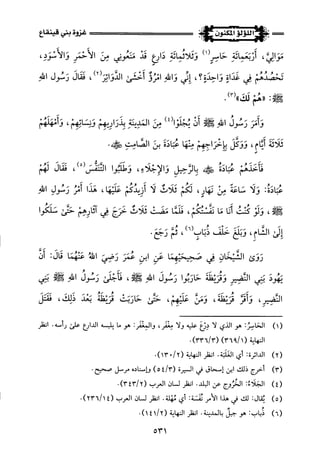 اللؤلؤ المكنون
غزوة بني قينقاع
مَوَالِيَّ، أَرْبَعمِائَةِ حَاسِرٍ(١) وَثَلَاثُمِائَةِ دَارِعٍ قَدْ مَنَعُونِي مِنَ الأَحْمَرِ وَالأَسْوَدِ،
تَحْصُدُهُمْ فِي غَدَاةٍ وَاحِدَةٍ؟، إِنِّي وَاللهِ امْرُؤٌ أَخْشَى الدَّوَائِرَ(٢)، فَقَالَ رَسُولُ اللهِ
ﷺ: «هُمْ لَكَ»(٣).
وَأَمَرَ رَسُولُ اللهِ ﷺ أَنْ يُجْلَوْا(٤) مِنَ المَدِينَةِ بِذَرَارِيهِمْ وَنِسَائِهِمْ، وَأَمْهَلَهُمْ
ثَلَاثَةَ أَيَّامٍ، وَوَكَّلَ بِإِخْرَاجِهِمْ مِنْهَا عُبَادَةَ بنَ الصَّامِتِ ﷺ.
فَأَخَذَهُمْ عُبَادَةُ بِالرَّحِيلِ وَالإِجْلَاءِ، وَطَلَبُوا التَّنَفُّسَ(٥)، فَقَالَ لَهُمْ
عُبَادَةُ: وَلَا سَاعَةً مِنْ نَهَارٍ، لَكُمْ ثَلَاثٌ لَا أَزِيدُكُمْ عَلَيْهَا، هَذَا أَمْرُ رَسُولِ اللهِ
ﷺ، وَلَوْ كُنْتُ أَنَا مَا نَفَّسْتُكُمْ، فَلَمَّا مَضَتْ ثَلَاثٌ خَرَجَ فِي آثَارِهِمْ حَتَّى سَلَكُوا
إِلَى الشَّامِ، وَبَلَغَ خَلْفَ ذُبَابٍ(٦)، ثُمَّ رَجَعَ.
رَوَى الشَّيْخَانِ فِي صَحِيحَيْهِمَا عَنِ ابنِ عُمَرَ رَضِيَ اللهُ عَنْهُمَا قَالَ: أَنَّ
يَهُودَ بَنِي النَّضِيرِ وَقُرَيْظَةَ حَارَبُوا رَسُولَ اللهِ ﷺ، فَأَجْلَى رَسُولُ اللهِ ﷺ بَنِي
النَّضِيرِ، وَأَقَرَّ قُرَيْظَةَ، وَمَنَّ عَلَيْهِمْ، حَتَّى حَارَبَتْ قُرَيْظَةُ بَعْدَ ذَلِكَ، فَقَتَلَ
(١) الحَاسِرُ: هو الذي لا دِرْعَ عليه ولا مِغْفَر، والمِغْفَر: هو ما يلبسه الدارع على رأسه. انظر
النهاية (٣٦٩/١) (٣٣٦/٣).
(٢) الدائرة: أي الغَلَبَة. انظر النهاية (١٣٠/٢).
(٣) أخرج ذلك ابن إسحاق في السيرة (٥٤/٣) وإسناده مرسل صحيح.
(٤) الجَلَاءُ: الخُرُوج عن البلد. انظر لسان العرب (٣٤٣/٢).
(٥) يُقال: لك في هذا الأمر نُفْسَة: أي مُهْلة. انظر لسان العرب (٢٣٦/١٤).
(٦) ذُباب: هو جبلٌ بالمدينة. انظر النهاية (١٤١/٢).
٥٣١